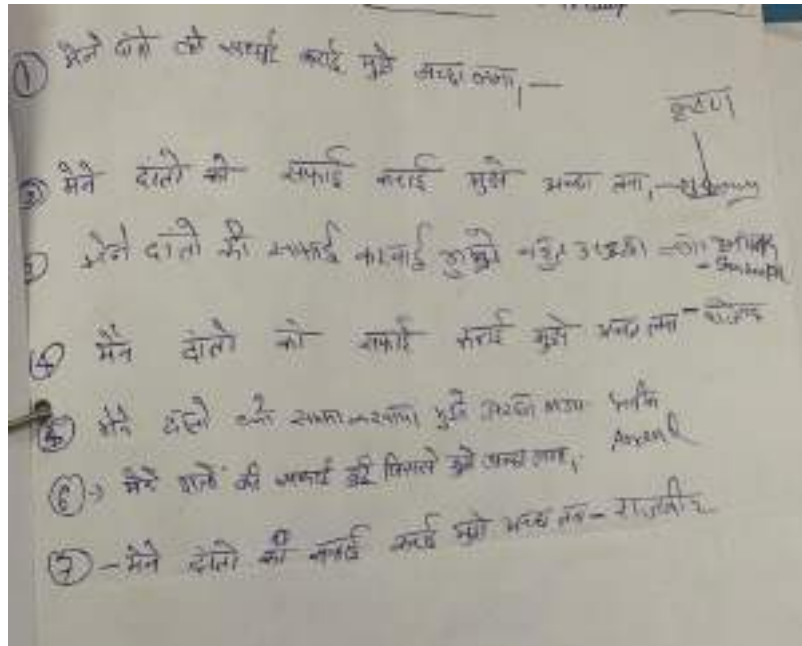 ① मैने दांतो की सफाई कराई मुझे अच्छा लगा,—
मैने दांतो की सफाई कराई मुझे अच्छा लगा,—
मैने दांतो की सफाई करवाई मुझे बहुत अच्छा
④ मैने दांतो की सफाई कराई मुझे अच्छा लगा –
मैने दांतो की मुझे अच्छा लगा
⑥ → मैने दांतों की सफाई हुई जिससे मुझे अच्छा लगा,
⑦ – मैने दांतो की सफाई कराई मुझे अच्छा लगा – राजवीर